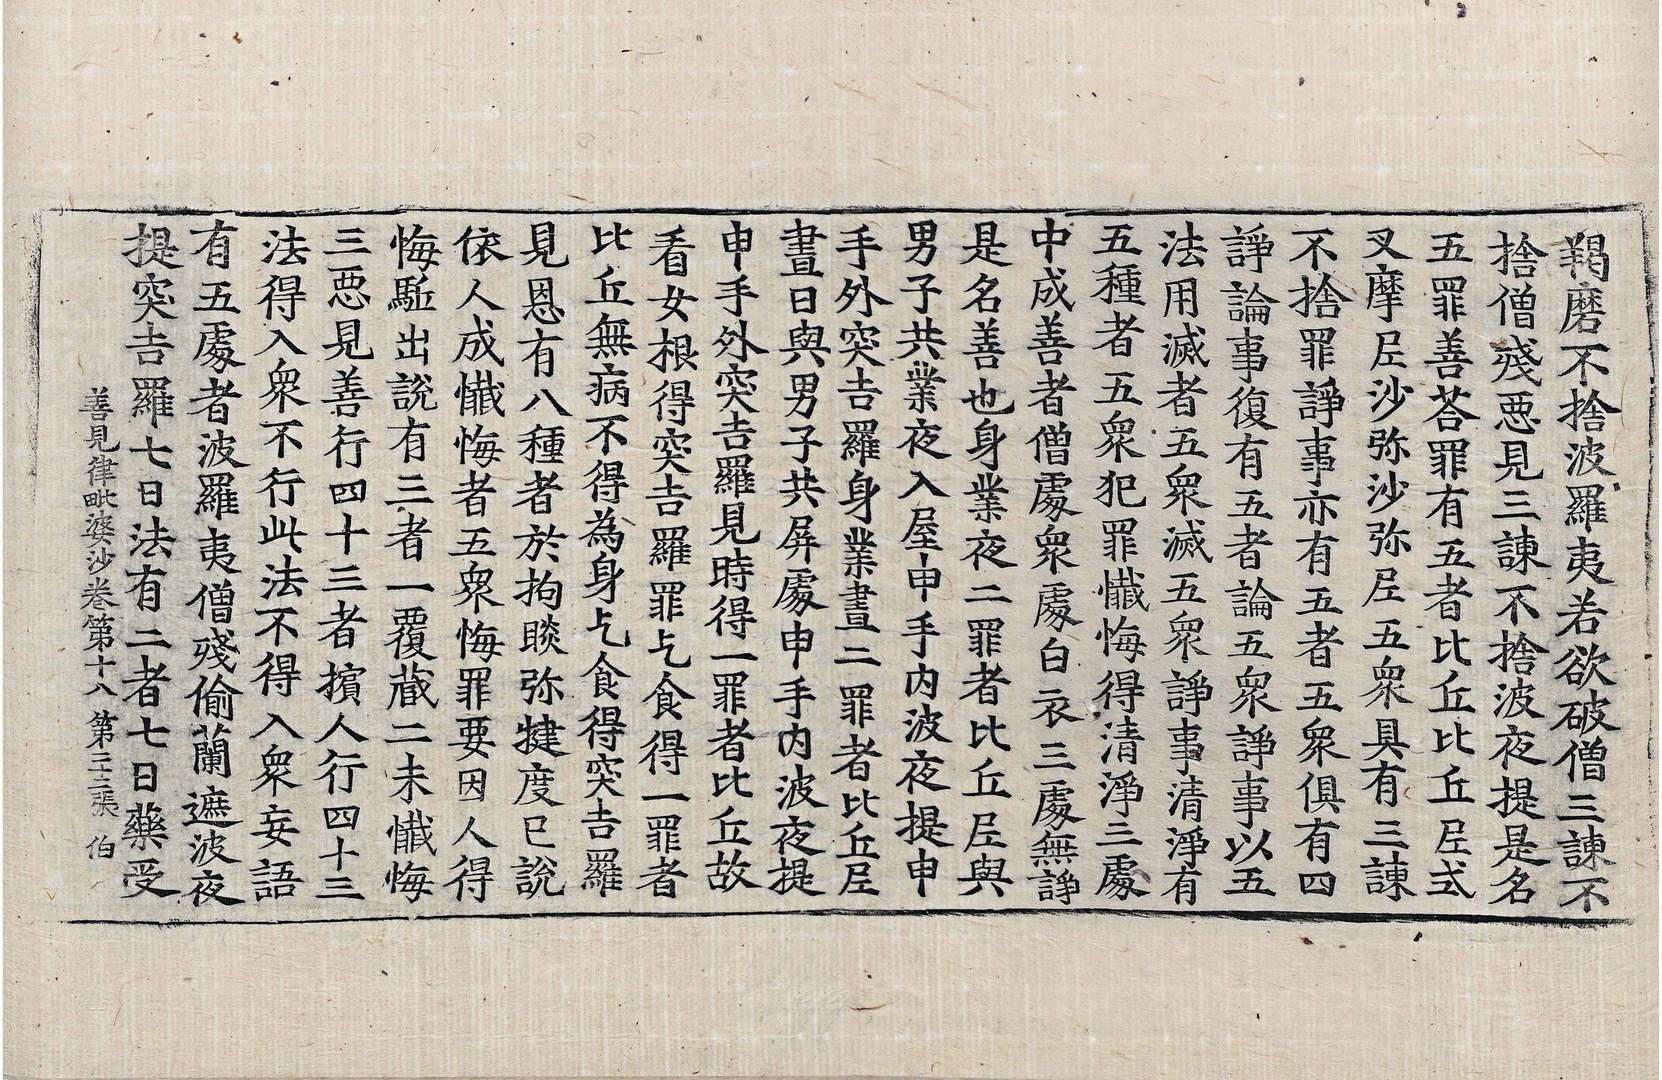 羯磨不捨波羅夷若欲破僧三諫不
捨僧殘惡見三諫不捨波夜提是名
五罪善荅罪有五者比丘比丘尼式
叉摩尼沙弥沙弥尼五衆具有三諫
不捨罪諍事亦有五者五衆俱有四
諍論事復有五者論五衆諍事以五
法用滅者五衆滅五衆諍事清淨有
五種者五衆犯罪懺悔得清淨三處
中成善者僧處衆處白衣三處無諍
是名善也身業夜二罪者比丘尼與
男子共業夜入屋申手內波夜提申
手外突吉羅身業晝二罪者比丘尼
晝日與男子共屏處申手內波夜提
申手外突吉羅見時得一罪者比丘故
看女根得突吉羅罪乞食得一罪者
比丘無病不得為身乞食得突吉羅
見恩有八種者於拘睒弥犍度已說
依人成懺悔者五衆悔罪要因人得
悔驅出說有三者一覆藏二未懺悔
三惡見善行四十三者擯人行四十三
法得入衆不行此法不得入衆妄語
有五處者波羅夷僧殘偷蘭遮波夜
提突吉羅七日法有二者七日藥受
善見律毗婆沙卷第十八 第二三張 伯